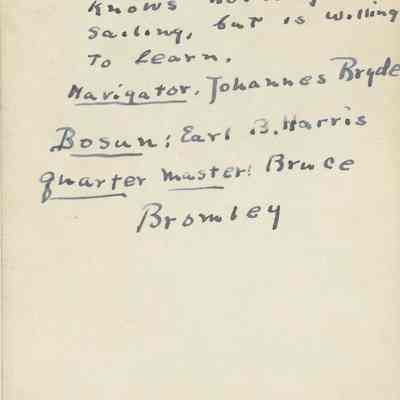 Knows
sailing, but is willing
To learn.
Navigator. Johannes Bryde
Bosun: Earl B. Harris
Quarter Master: Bruce
Bromley